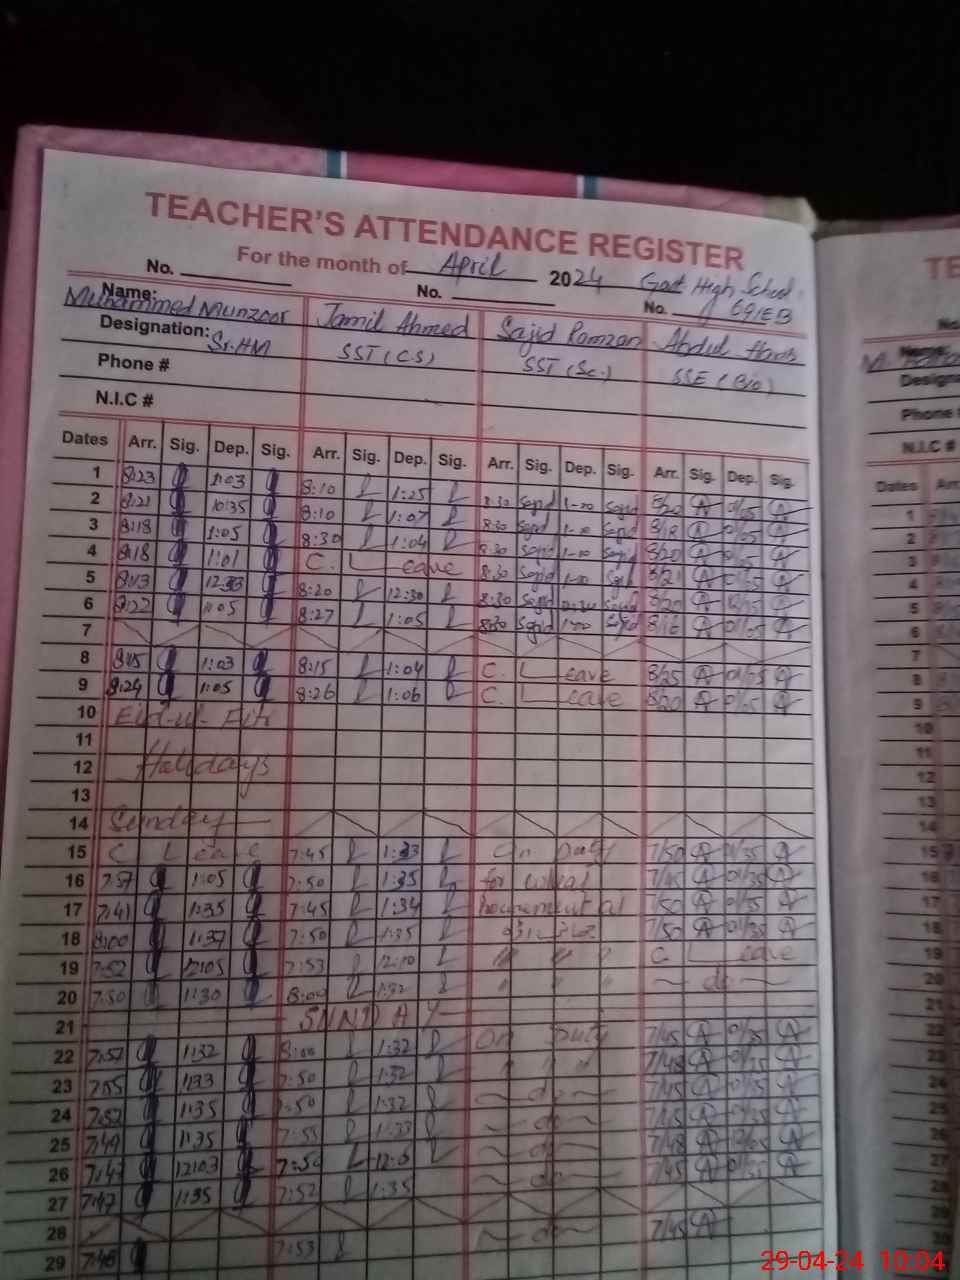 TEACHER'S ATTENDANCE REGISTER
For the month of April 2024 Govt High School
No. No. No. 691EB
Name: Muhammed Munzoor Jamil Ahmed Sajid Ramzan Abdul Haris
Designation: Sr.HM SST (C.S) SST (Sc.) SSE (Bio)
Phone #
N.I.C #
Dates Arr. Sig. Dep. Sig. Arr. Sig. Dep. Sig. Arr. Sig. Dep. Sig. Arr. Sig. Dep. Sig.
1 8:23 1:03 8:10 1:25 8:30 Sajid 1-00 Sajid 8/20 01/05
2 8:21 10:35 8:10 1:07 8:30 Sajid 1-00 Sajid 8/18 01/05
3 8:18 1:05 8:30 1:04 8:30 Sajid 1-00 Sajid 8/20 01/05
4 8:18 1:01 C. Leave 8:30 Sajid 1-00 Sajid 8/21 01/05
5 8:13 12:33 8:20 12:30 8:30 Sajid Sajid 8/20 12/15
6 8:22 1:05 8:27 1:05 8:30 Sajid 1-00 Sajid 8/16 01/05
7
8 8:15 1:03 8:15 1:04 C. Leave 8/25 01/05
9 8:24 1:05 8:26 1:06 C. Leave 8/20 01/05
10 Eid-ul-Fitr
11
12 Holidays
13
14 Sunday
15 C Leave 7:45 1:33 On Duty 7/50 01/35
16 7:57 1:05 7:50 1:35 for 7/45 01/35
17 7:41 1:35 7:45 1:34 7/50 01/35
18 8:00 1:37 7:50 1:35 7/50 01/35
19 7:52 12:05 7:53 12:10 " " " C Leave
20 7:50 1:30 8:00 1:32 " " " ~ do ~
21 SNND A Y
22 7:52 1:32 8:00 1:32 On Duty 7/45 01/35
23 7:55 1:33 7:50 1:32 " " " 7/48 01/35
24 7:52 1:35 7:50 1:32 ~ do ~ 7/45 01/35
25 7:49 1:35 7:55 1:33 ~ do ~ 7/45 01/35
26 7:47 12:03 7:50 ~ do ~ 7/48 12/05
27 7:47 1:35 7:52 1:35 ~ do ~ 7/45 01/35
28
29 7:48 7:53 ~ do ~ 7/45
29-04-24 10:04